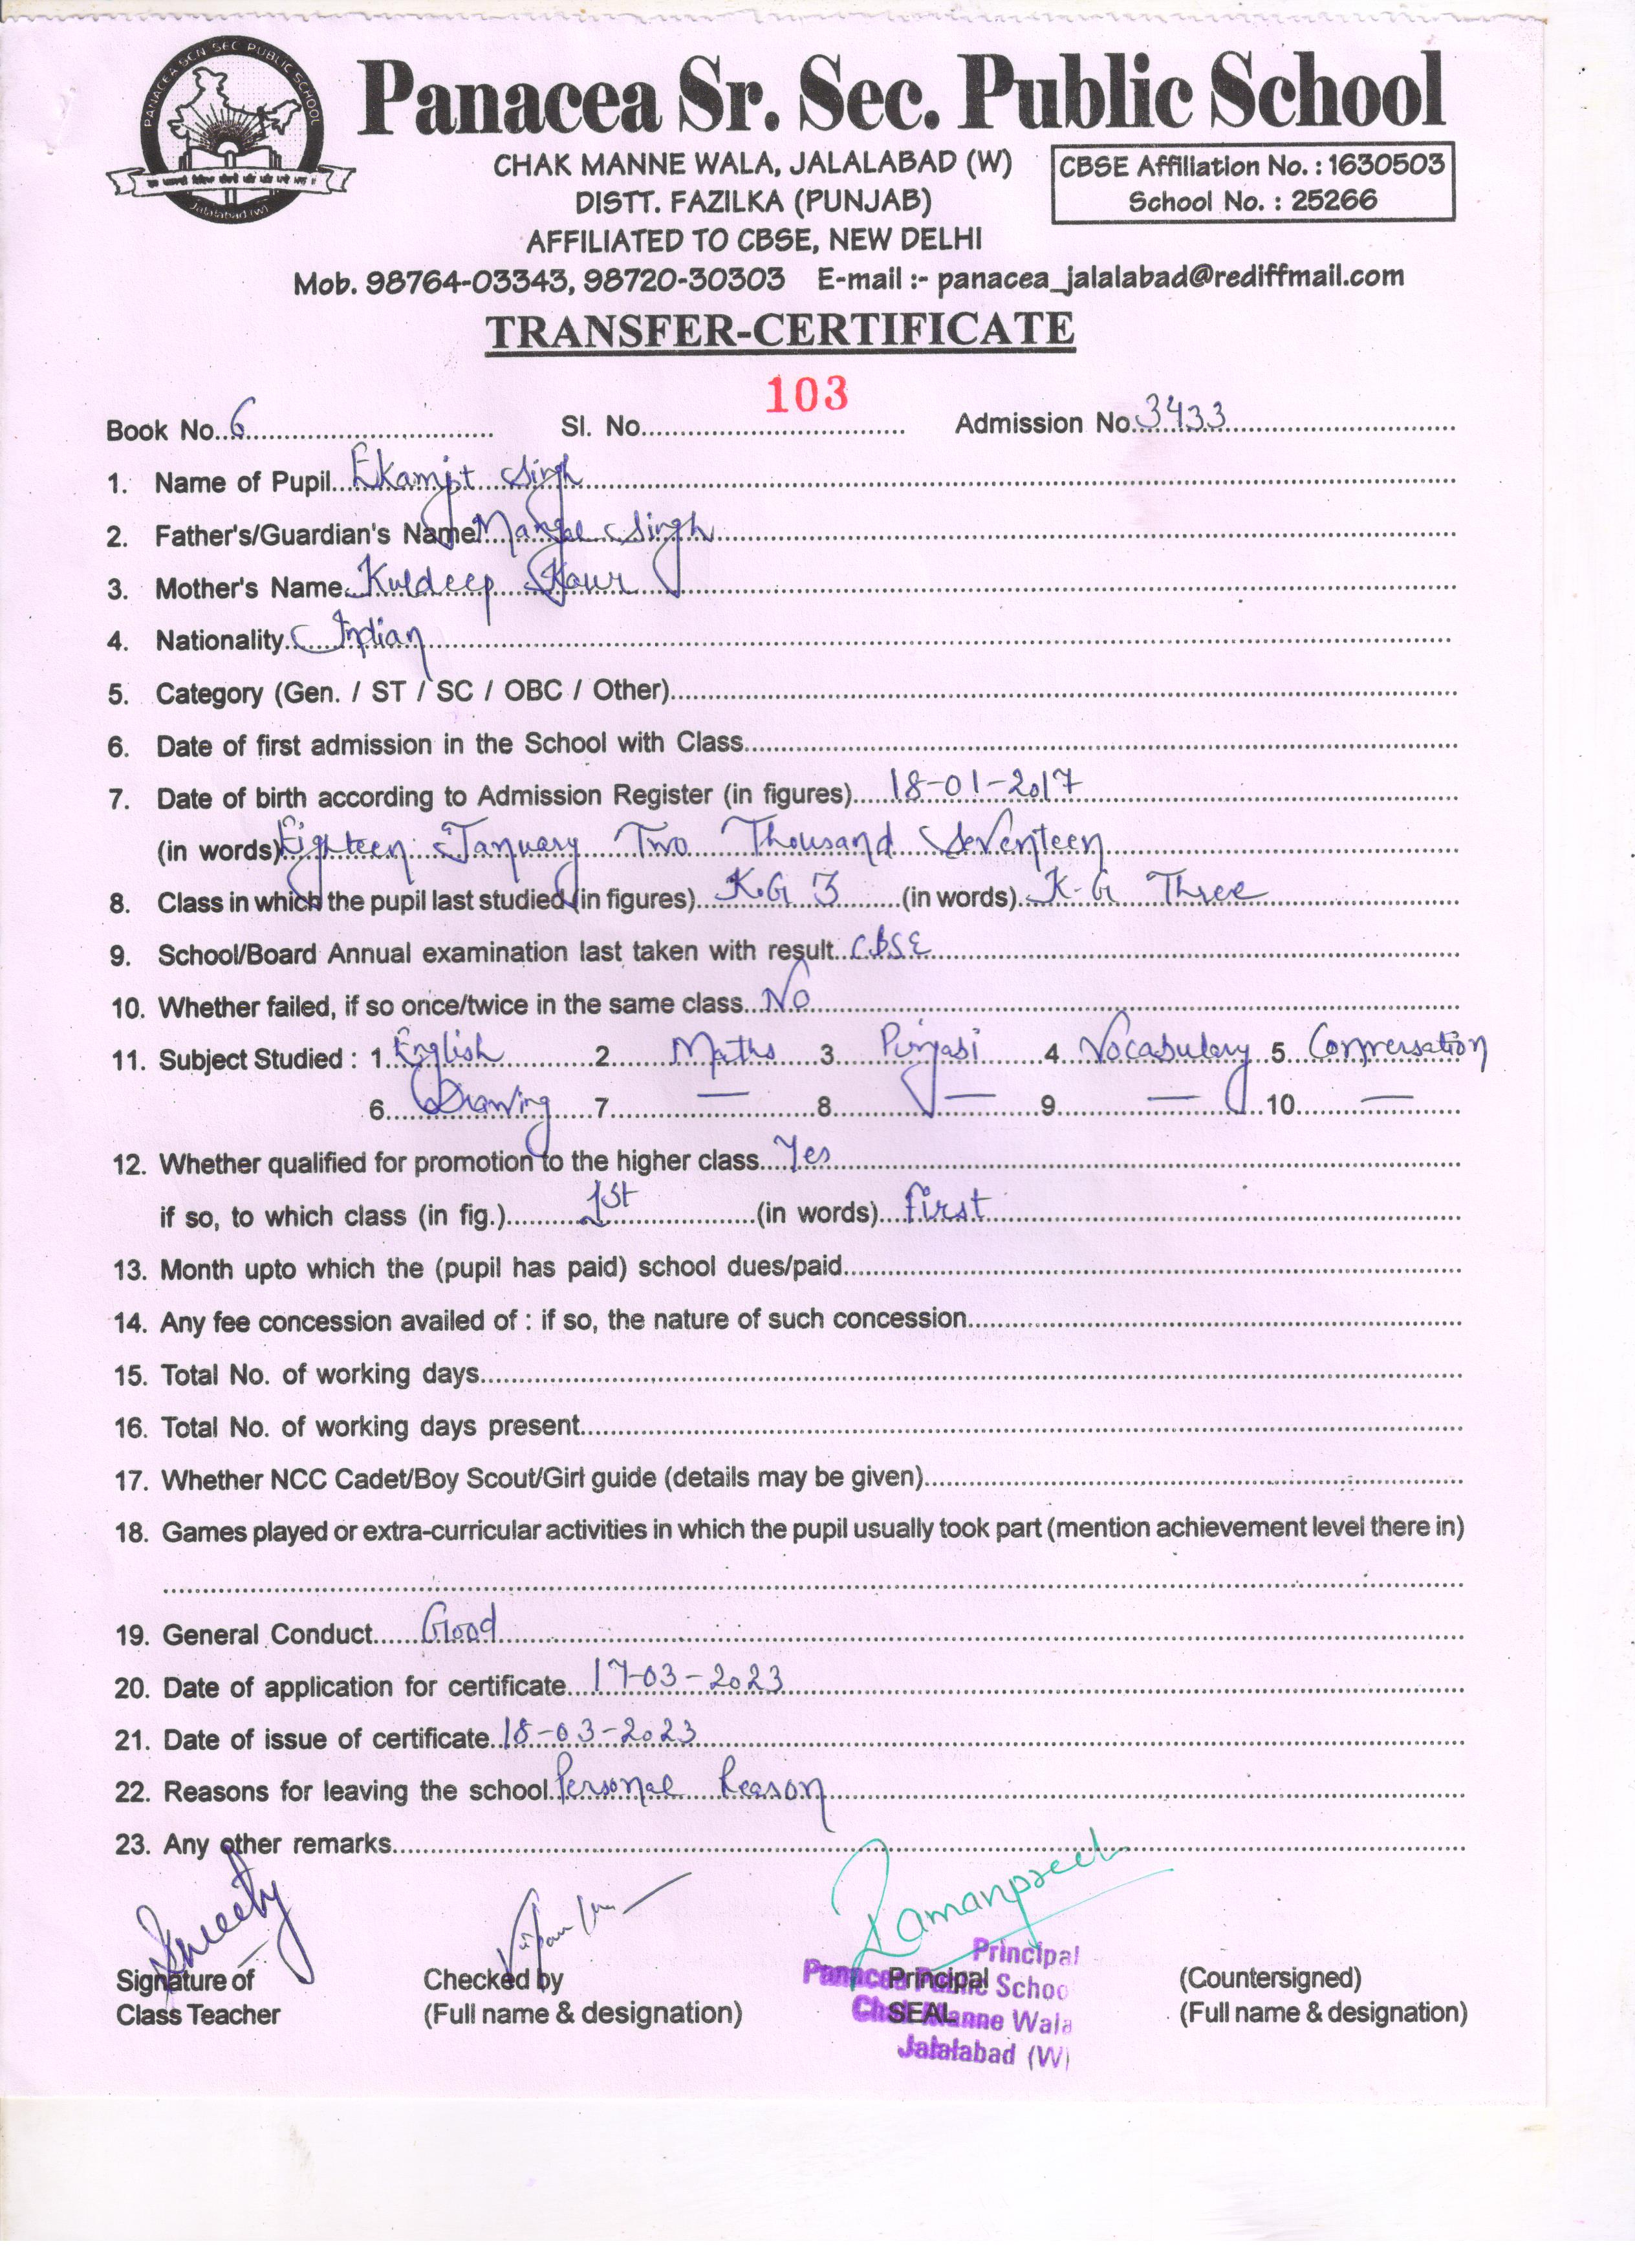 PANACEA SCN SEC PUBLIC SCHOOL
Jalalabad (W)
Panacea Sr. Sec. Public School
CHAK MANNE WALA, JALALABAD (W)
DISTT. FAZILKA (PUNJAB)
AFFILIATED TO CBSE, NEW DELHI
CBSE Affiliation No. : 1630503
School No. : 25266
Mob. 98764-03343, 98720-30303 E-mail :- panacea_jalalabad@rediffmail.com
TRANSFER-CERTIFICATE
Book No. 6 Sl. No. 103 Admission No. 3433
1. Name of Pupil Ekamjit Singh
2. Father's/Guardian's Name Mangal Singh
3. Mother's Name Kuldeep Kaur
4. Nationality Indian
5. Category (Gen. / ST / SC / OBC / Other)
6. Date of first admission in the School with Class
7. Date of birth according to Admission Register (in figures) 18-01-2017
(in words) Eighteen January Two Thousand Seventeen
8. Class in which the pupil last studied (in figures) K.G 3 (in words) K-G Three
9. School/Board Annual examination last taken with result CBSE
10. Whether failed, if so once/twice in the same class No
11. Subject Studied : 1. English 2 Maths 3. Punjabi 4 Vocabulary 5 Conversation
6. Drawing 7 — 8 — 9 — 10 —
12. Whether qualified for promotion to the higher class Yes
if so, to which class (in fig.) 1st (in words) First
13. Month upto which the (pupil has paid) school dues/paid
14. Any fee concession availed of : if so, the nature of such concession
15. Total No. of working days
16. Total No. of working days present
17. Whether NCC Cadet/Boy Scout/Girl guide (details may be given)
18. Games played or extra-curricular activities in which the pupil usually took part (mention achievement level there in)
19. General Conduct Good
20. Date of application for certificate 17-03-2023
21. Date of issue of certificate 18-03-2023
22. Reasons for leaving the school Personal Reason
23. Any other remarks
Ramanpreet
Signature of
Class Teacher
Checked by
(Full name & designation)
Principal
SEAL
Principal
Panacea Public School
Chak Manne Wala
Jalalabad (W)
(Countersigned)
(Full name & designation)